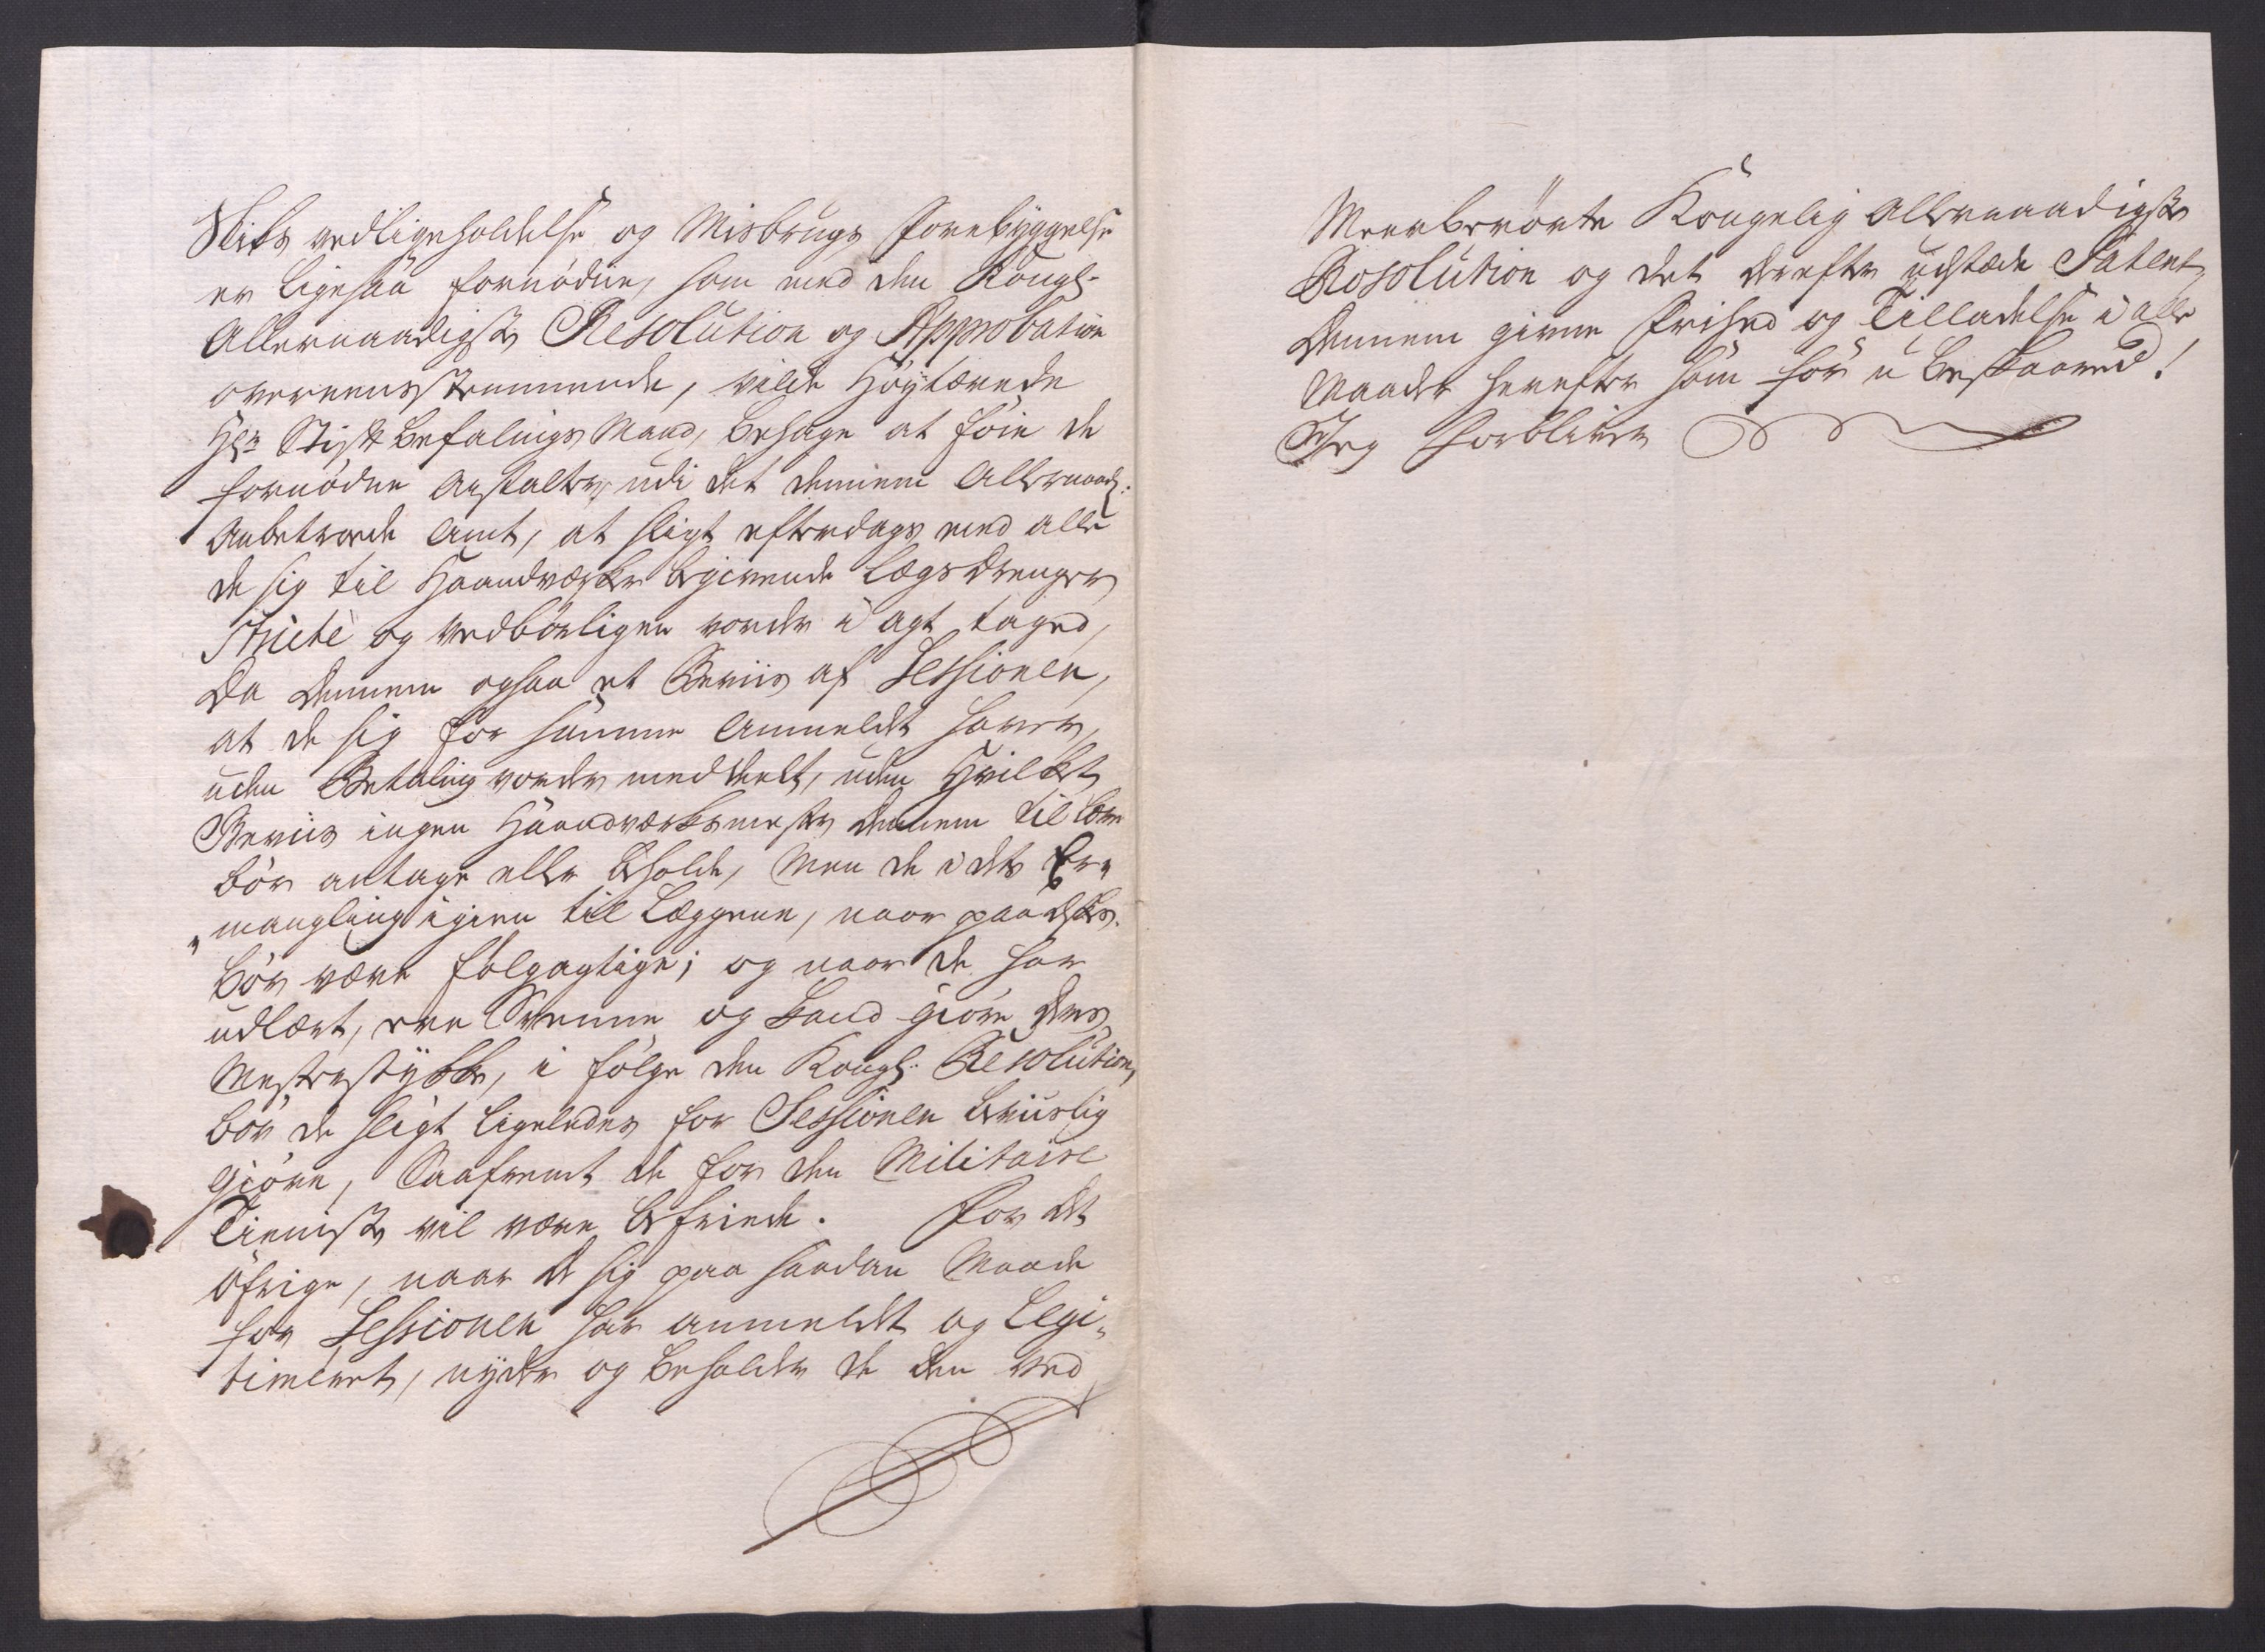 Skiks vedligeholdelse og Misbrugs forebÿggelse
er ligesaa fornöden, som med den Kongl.
Allernaadigste Resolution og Approbation
overeensstemmende, vilde Höÿtærede
Hr. Stiftbefalings Mand, behage at föie de
fornödne Anstalter, udi det dennem Allernaad:
Anbetroede Amt, at sligt efterdags med alle
de sig til Haandværker begivende Lægsdrenger
Stricte og vedbörligen vorder i agt taged,
da dennem ogsaa et Beviis af Sessionen,
at de sig for samme Anmeldt haver,
uden Betaling vorder meddeelt, uden Hvilket
Beviis ingen Haandværksmester dennem til lære
bör antage eller beholde, Men de i dets
mangling igien til Læggene, naar paaeskes.
bör være fölgagtige; og naar de har
udlært, ere Svenne og kand giöre deres
Mesterstÿkke, i fölge den Kongl. Resolution,
bör de sligt ligeledes for Sessionen beviislig
giöre, Saafremt de for den Militaire
Tienniste vil være befriede. For det
öfrige, naar de sig paa saadan Maade
for Sessionen har anmeldt og Legi-
timeret, nÿder og beholder de den ved
Meerberörte Kongelig Allernaadigste
Resolution og det derefter udstæde Patent,
Dennem givne Frihed og Tilladelse i alle
Maader herefter som för u-beskaared!
Jeg forbliver